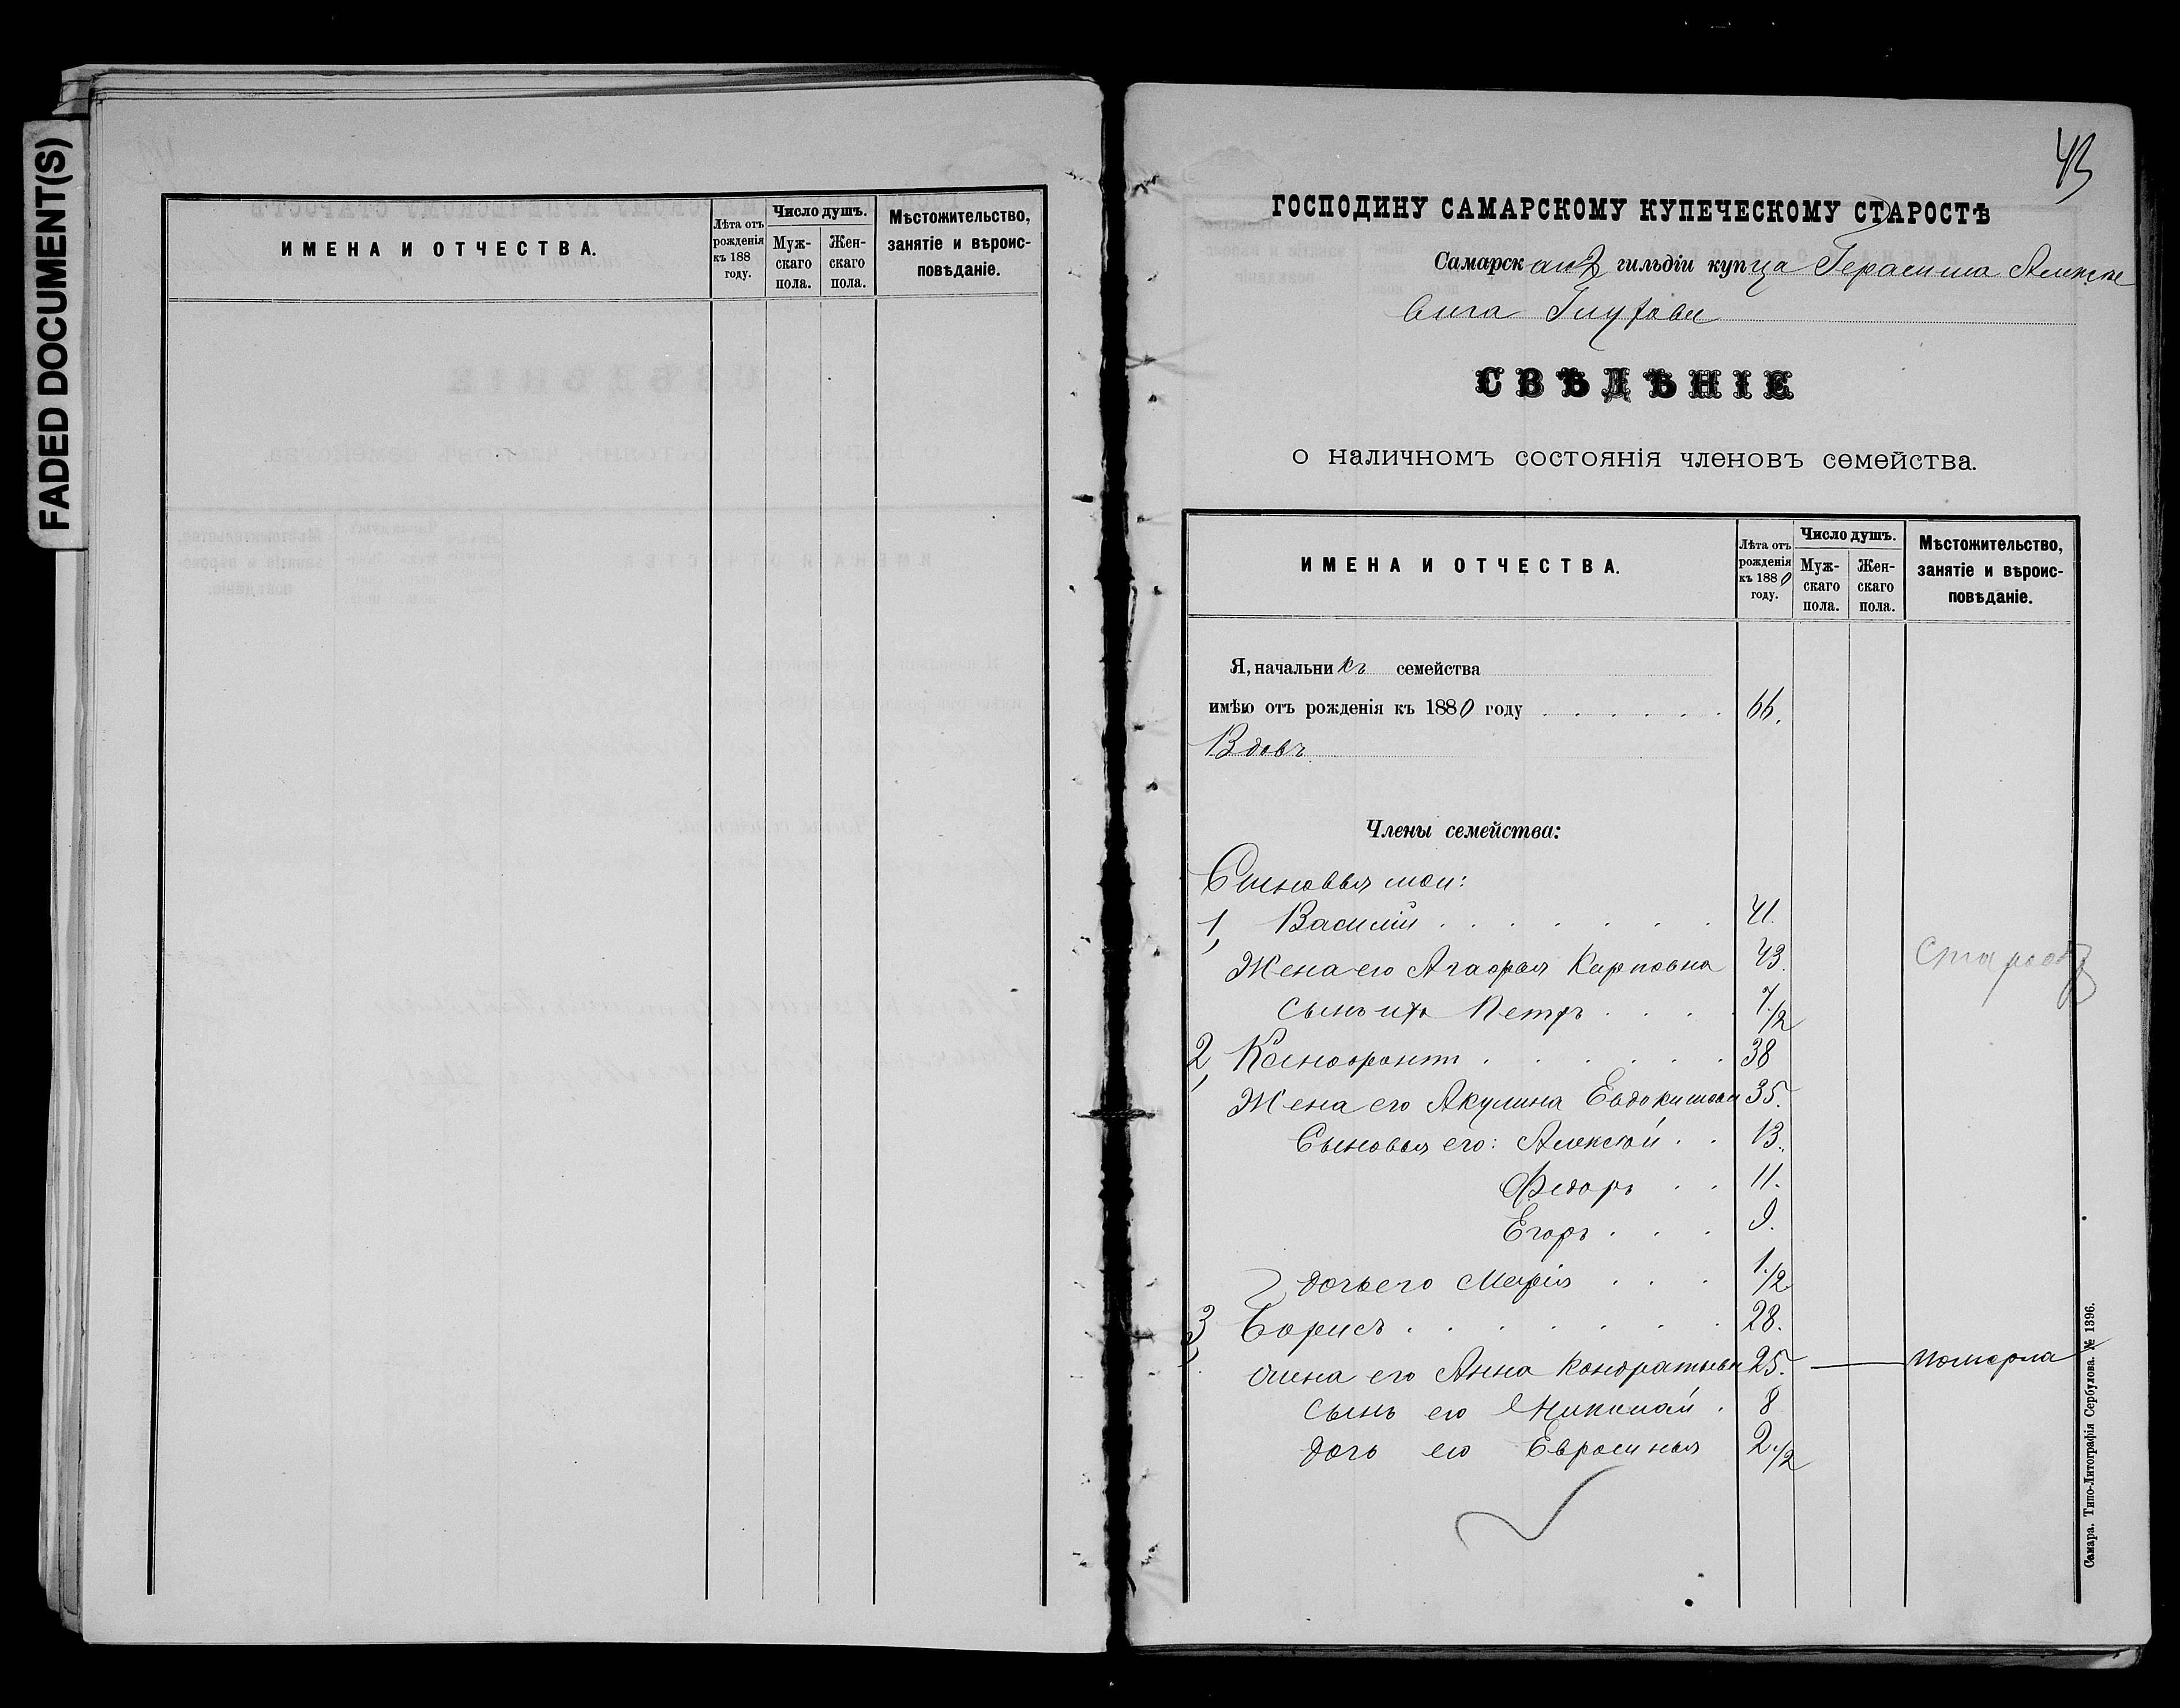 FADED DOCUMENT(S)
ИМЕНА И ОТЧЕСТВА.
Лѣта отъ рожденія къ 188 году.
Число душъ.
Мужскаго пола.
Женскаго пола.
Мѣстожительство, занятіе и вѣроисповѣданіе.
43
ГОСПОДИНУ САМАРСКОМУ КУПЕЧЕСКОМУ СТАРОСТѢ
Самарскаго 2 гильдіи купца Герасима Алексѣе
вича
СВѢДѢНІЕ
о наличномъ состоянія членовъ семейства.
ИМЕНА И ОТЧЕСТВА.
Лѣта отъ рожденія къ 1880 году.
Число душъ.
Мужскаго пола.
Женскаго пола.
Мѣстожительство, занятіе и вѣроисповѣданіе.
Я, начальникъ семейства
имѣю отъ рожденія къ 1880 году . . . . . . 66.
Вдовъ
Члены семейства:
Сыновья мои:
1, Василій . . . . . . . 41.
Жена его Агафья Карповна 43.
Сынъ ихъ Петръ . . . . 7 1/2
2, Ксенофонтъ . . . . . . 38
Жена его Акулина Евдокимовн 35.
Сыновья его: Алексѣй . . 13.
Федоръ . . 11.
Егоръ . . . 9.
дочь его Марія . . . 1 1/2
3, Борисъ . . . . . . . 28.
жена его Анна Кондратьевн 25. — померла
Сынъ его Николай . 8
дочь его Евросинья 2 1/2
Самара. Типо-Литографія Сербулова. № 1396.